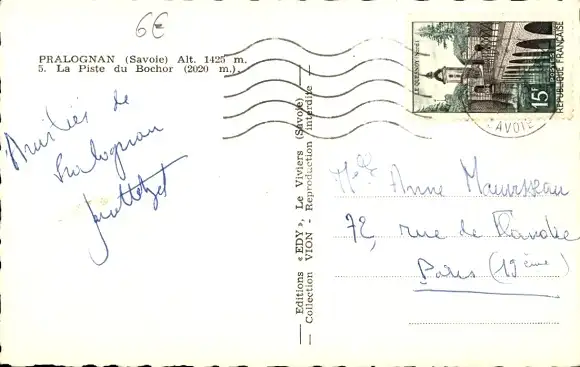 6€
PRALOGNAN (Savoie) Alt. 1425 m.
5. La Piste du Bochor (2020 m.).
Amitiés de
Pralognan
Editions « EDY », Le Viviers (Savoie)
Collection VION - Reproduction interdite
LE QUESNOY (Nord)
15F
POSTES
REPUBLIQUE FRANÇAISE
SAVOIE
Mlle Anne
72, rue de
Paris (19ème)